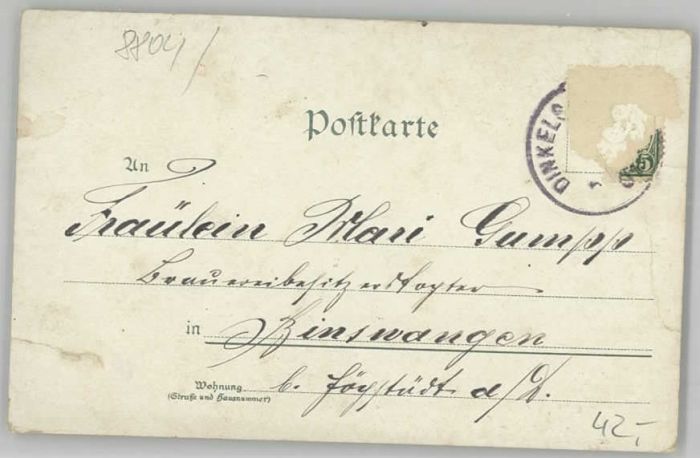 8804 /
Postkarte
DINKELS
5
An
Fräulein Mari Gumpp
Brauereibesitzerstochter
in Binswangen
Wohnung b. Höchstädt a/D.
(Straße und Hausnummer)
42,-